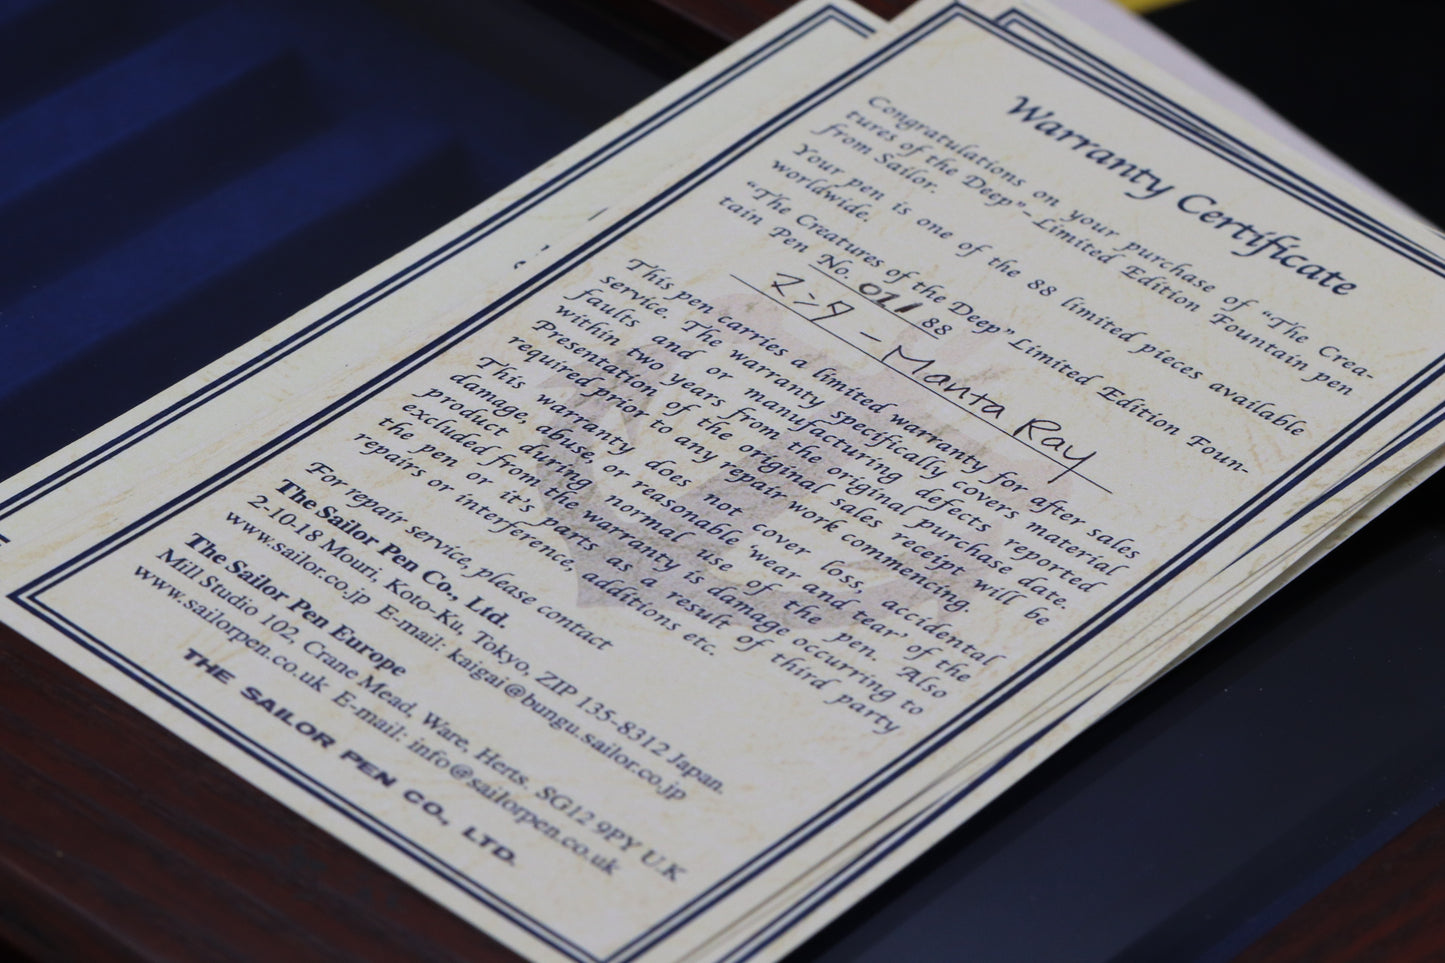 Warranty Certificate
Congratulations on your purchase of "The Crea-
tures of the Deep"-Limited Edition Fountain pen
from Sailor.
Your pen is one of the 88 limited pieces available
worldwide.
"The Creatures of the Deep" Limited Edition Foun-
tain Pen No. 011 88
マンタ - Manta Ray
This pen carries a limited warranty for after sales
service. The warranty specifically covers material
faults and or manufacturing defects reported
within two years from the original purchase date.
Presentation of the original sales receipt will be
required prior to any repair work commencing.
This warranty does not cover loss, accidental
damage, abuse, or reasonable 'wear and tear' of the
product during normal use of the pen. Also
excluded from the warranty is damage occurring to
the pen or it's parts as a result of third party
repairs or interference, additions etc.
For repair service, please contact
The Sailor Pen Co., Ltd.
2-10-18 Mouri, Koto-Ku, Tokyo, ZIP 135-8312 Japan.
www.sailor.co.jp E-mail: kaigai@bungu.sailor.co.jp
The Sailor Pen Europe
Mill Studio 102, Crane Mead, Ware, Herts. SG12 9PY U.K
www.sailorpen.co.uk E-mail: info@sailorpen.co.uk
THE SAILOR PEN CO., LTD.